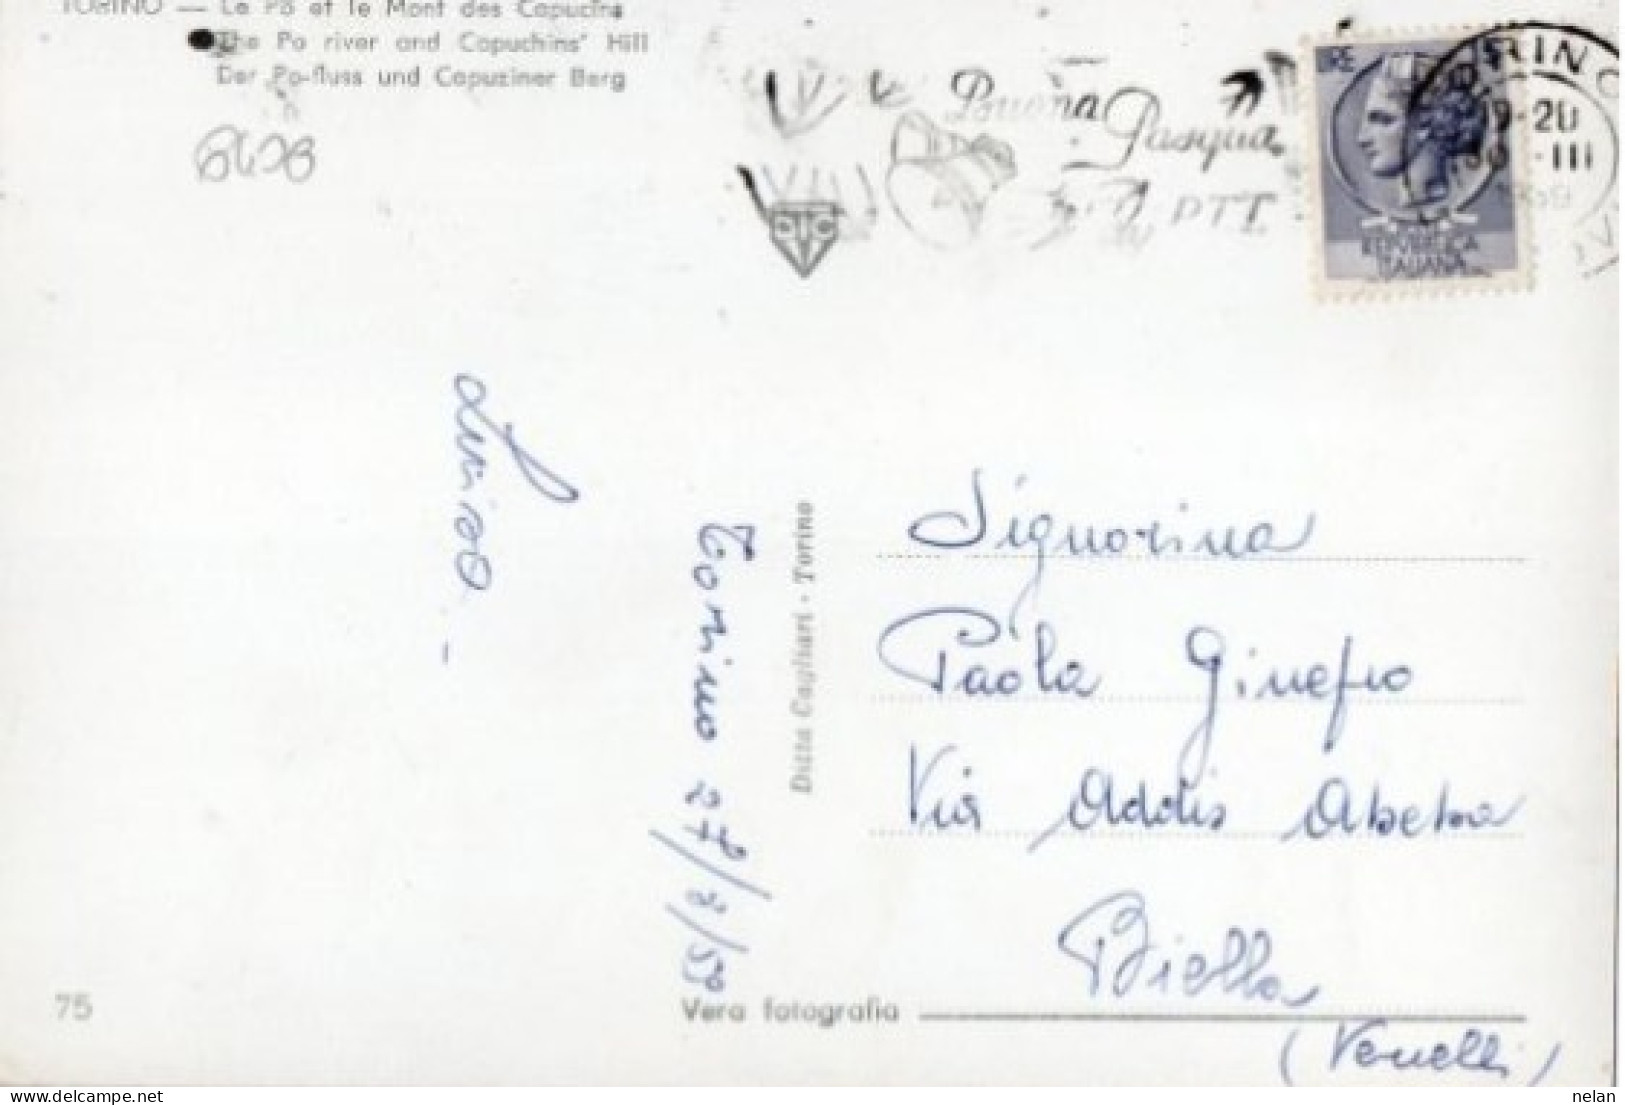 TORINO — Le Pô et le Mont des Capucins
The Po river and Capuchins' Hill
Der Po-fluss und Capuziner Berg
Buona
Pasqua
PTT
LIRE
REPVBBLICA
ITALIANA
TORINO
19-20
30 - III
1959
Torino 27/3/59
Ditta Cagliari - Torino
Signorina
Paola
Via Addis Abeba
Biella
75
Vera fotografia
nelan